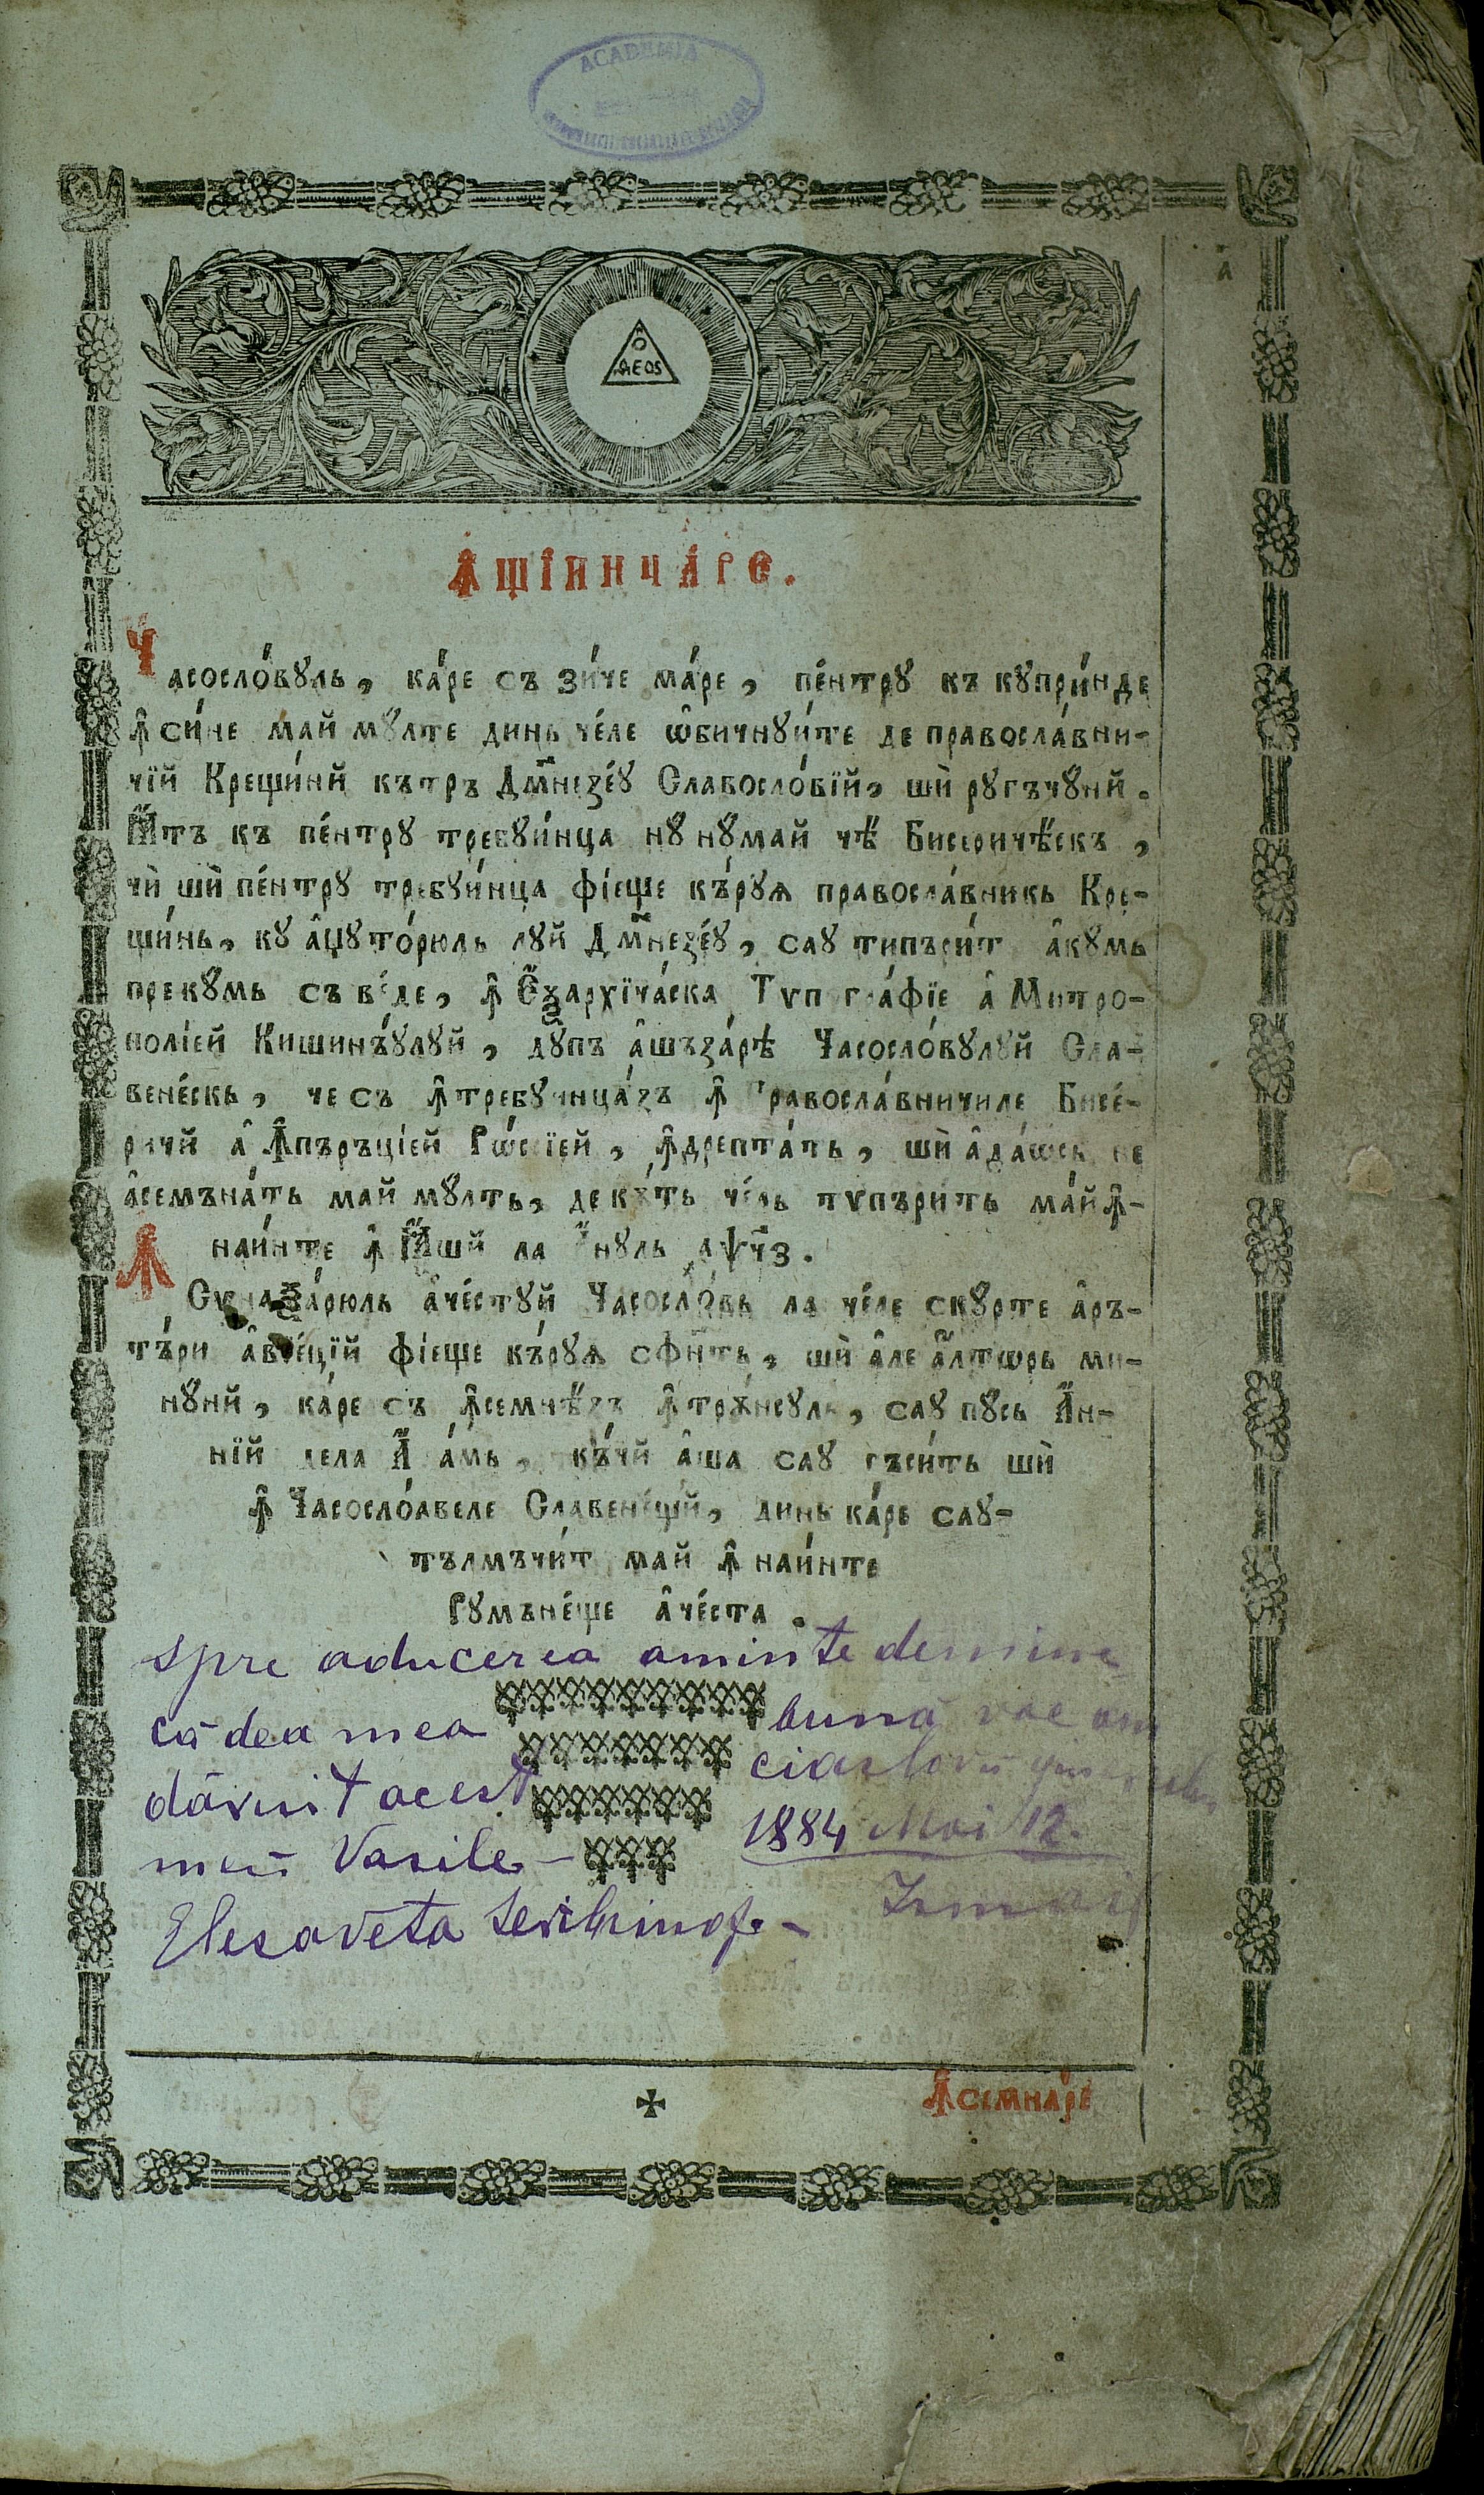 ACADEMIA
а҃
Ѳеоѕ
Ꙟщіинца́ре.
Часосло́вꙋль, ка́ре съ зи́че ма́ре, пе́нтрꙋ къ кꙋпри́нде
ꙟ си́не май мꙋ́лте динь че́ле ѡ҆бичнꙋи́те де правосла́вни-
чїй Крещи́нй кътръ Дм҃незе́ꙋ Славосло́вїй, шѝ рꙋгъчꙋ́нй.
пе́нтрꙋ требꙋи́нца нꙋ нꙋ́май чѣ̀ Бисеричѣ́скъ,
чѝ шѝ пе́нтрꙋ требꙋи́нца фїеще къ́рꙋѧ правосла́вникь Кре-
щи́нь, кꙋ а҆џꙋто́рюль лꙋй Дм҃незе́ꙋ, саꙋ типъри́т а҆кꙋмь
прекꙋ́мь съ ве́де, ꙟ Е҆ѯархїча́ска Тѵпогра́фїе а҆ Митро-
поліей Кишинъ́ꙋлꙋй, дꙋ́пъ а҆шъза́рѣ Часосло́вꙋлꙋй Сла-
вене́скь, че съ ꙟтребꙋинца́зъ ꙟ Правосла́вничиле Бисе́-
ричй а҆ Ꙟпъръціей Рѡсїей, ꙟдрепта́ть, шѝ а҆да́ѡсь не
а҆семъна́ть май мꙋ́лть, де къ́ть че́ль тѵпъри́ть ма́й ꙟ-
наи́нте ꙟ І҆а́шй ла а҆́нꙋль ҂аѱч҃з.
Ꙟ Сѵнаѯа́рюль а҆че́стꙋй Часосло́вь ла че́ле скꙋ́рте а҆ръ-
тъ́ри а҆ вїе́цїй фїеще къ́рꙋѧ сфн҃ть, шѝ а҆ле а҆́лтѡрь ми-
нꙋ́нй, ка́ре съ ꙟсемнѣ́зъ ꙟтрѫ́нсꙋль, саꙋ пꙋсь А҆́н-
нїй дела А҆да́мь, къ́чй а҆ша саꙋ гъси́ть шѝ
ꙟ Часосло́авеле Славене́щй, динь ка́ре саꙋ-
тълмъчи́т май ꙟнаи́нте
Рꙋмъне́ще а҆че́ста.
spre aducerea aminte demine
că dea mea bună voe am
dăruit acest ciaslovŭ
meŭ Vasile – 1884 Mai 12.
Elesaveta
✠ Ꙟсемнаре